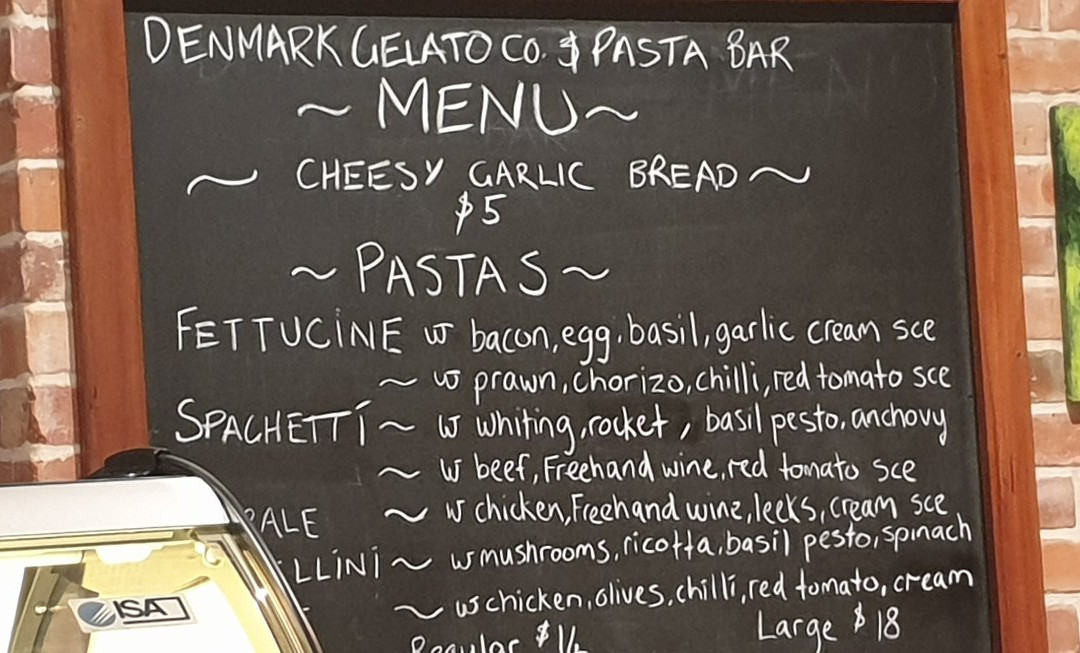 DENMARK GELATO CO. & PASTA BAR
~ MENU ~
~ CHEESY GARLIC BREAD ~
$5
~ PASTAS ~
FETTUCINE w bacon, egg, basil, garlic cream sce
~ w prawn, chorizo, chilli, red tomato sce
SPAGHETTI ~ w whiting, rocket, basil pesto, anchovy
~ w beef, Freehand wine, red tomato sce
~ w chicken, Freehand wine, leeks, cream sce
~ w mushrooms, ricotta, basil pesto, spinach
~ w chicken, olives, chilli, red tomato, cream
Regular Large $18
ISA